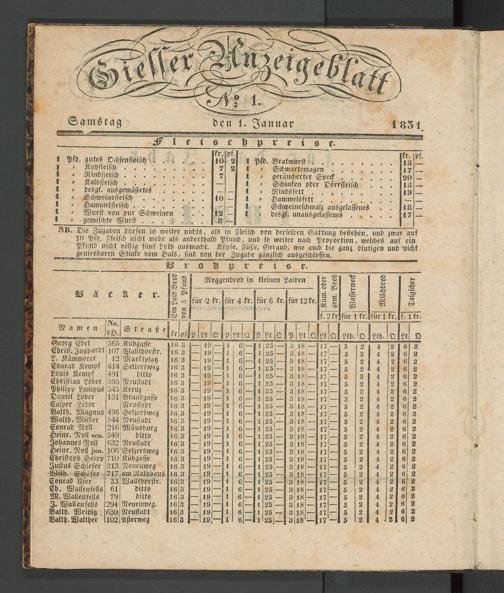 Giesser Anzeigeblatt
No 1.
Samstag den 1. Januar 1831
Fleischpreise.
kr. pf. kr. pf.
1 Pfd. gutes Ochsenfleisch 10 2 1 Pfd. Bratwurst 13 —
1 „ Kuhfleisch 7 2 1 „ Schwartemagen 17 —
1 „ Rindfleisch 7 1 „ geräucherter Speck 20 —
1 „ Kalbfleisch — 1 „ Schinken oder Dörrfleisch 13 —
1 „ desgl. ausgemästetes — 1 „ Rindsfett 19 —
1 „ Schweinefleisch 10 — 1 „ Hammelsfett
1 „ Hammelfleisch 1 „ Schweineschmalz ausgelassenes 18 —
1 „ Wurst von pur Schweinen 12 1 „ desgl. unausgelassenes 17 —
1 „ gemischte Wurst 8 —
NB. Die Zugaben dürfen in weiter nichts, als in Fleisch von derselben Gattung bestehen, und zwar auf
10 Pfd. Fleisch nicht mehr als anderthalb Pfund, und so weiter nach Proportion, welches auf ein
Pfund nicht völlig fünf Loth ausmacht. Köpfe, Füße, Geraub, wie auch der ganz blutigen und nicht
geniesbaren Stücke vom Hals, sind von der Zugabe gänzlich ausgeschlossen.
Brodpreise.
Bäcker.
Ein Laib Brod von 5 Pfund
Roggenbrod in kleinen Laiben
für 2 kr. für 4 kr. für 6 kr. für 12 kr.
Küm. oder gem. Brod
Wasserweck
Milchbrod
f. 2 kr. für 1 kr. für 1 kr. f. 1 kr.
Namen No. Straße kr pf P Lt Q P Lt Q P Lt Q P Lt Q
Georg Ebel 565 Kuhgasse 16 3 — 19 — 1 6 — 1 25 — 3 18 — 17 — 5 2 4 2 6 2
Christ. Inghardt 107 Wallthorstr. 16 3 — 19 — 1 6 — 1 25 — 3 18 — 17 — 5 2 4 2 6 2
L. Kämmerer 12 Marktplatz 16 3 — 19 — 1 6 — 1 25 — 3 18 — 17 — 5 2 4 2 6 2
Conrad Kempf 414 Selzersweg 16 3 — 19 — 1 6 — 1 25 — 3 18 — 17 — 5 2 4 2 6 2
Louis Kempf 491 ditto 16 3 — 19 — 1 6 — 1 25 — 3 18 — 17 — 5 2 4 2 6 2
Christian Löber 595 Neustadt 16 3 — 19 — 1 6 — 1 25 — 3 18 — 17 — 5 2 4 2 6 2
Philipp Lampus 545 Kreuz 16 3 — 19 — 1 6 — 1 25 — 3 18 — 17 — 5 2 4 2 6 2
Daniel Löber 131 Brandgasse 16 3 — 19 — 1 6 — 1 25 — 3 18 — 17 — 5 2 4 2 6 2
Caspar Löber Neustadt 16 3 — 19 — 1 6 — 1 25 — 3 18 — 17 — 5 2 4 2 6 2
Balth. Magnus 496 Selzersweg 16 3 — 19 — 1 6 — 1 25 — 3 18 — 17 — 5 2 4 2 6 2
Balth. Müller 544 Neustadt 16 3 — 19 — 1 6 — 1 25 — 3 18 — 17 — 5 2 4 2 6 2
Conrad Noll 216 Mäusburg 16 3 — 19 — 1 6 — 1 25 — 3 18 — 17 — 5 2 4 2 6 2
Heinr. Noll sen. 549 ditto 16 3 — 19 — 1 6 — 1 25 — 3 18 — 17 — 5 2 4 2 6 2
Johannes Noll 632 Neustadt 16 3 — 19 — 1 6 — 1 25 — 3 18 — 17 — 5 2 4 2 6 2
Heinr. Noll jun. 106 Selzersweg 16 3 — 19 — 1 6 — 1 25 — 3 18 — 17 — 5 2 4 2 6 2
Christoph Seipp 710 Kuhgasse 16 3 — 19 — 1 6 — 1 25 — 3 18 — 17 — 5 2 4 2 6 2
Justus Schiefer 313 Neuenweg 16 3 — 19 — 1 6 — 1 25 — 3 18 — 17 — 5 2 4 2 6 2
Wilh. Schäfer 717 am Rathhaus 16 3 — 19 — 1 6 — 1 25 — 3 18 — 17 — 5 2 4 2 6 2
Conrad 33 Wallthorstr. 16 3 — 19 — 1 6 — 1 25 — 3 18 — 17 — 5 2 4 2 6 2
Ch. Wallenfels 61 ditto 16 3 — 19 — 1 6 — 1 25 — 3 18 — 17 — 5 2 4 2 6 2
M. Wallenfels 79 ditto 16 3 — 19 — 1 6 — 1 25 — 3 18 — 17 — 5 2 4 2 6 2
J. Wallenfels 294 Neuenweg. 16 3 — 19 — 1 6 — 1 25 — 3 18 — 17 — 5 2 4 2 6 2
Balth. Weidig 650 Neustadt 16 3 — 19 — 1 6 — 1 25 — 3 18 — 17 — 5 2 4 2 6 2
Balth. Walther 102 Asterweg 16 3 — 19 — 1 6 — 1 25 — 3 18 — 17 — 5 2 4 2 6 2